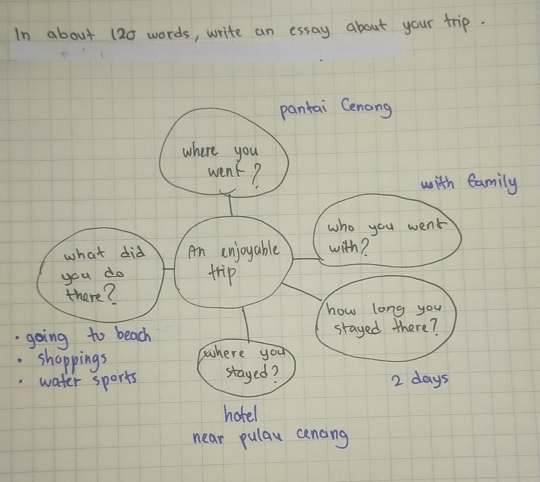 In about 120 words, write an essay about your trip.
pantai Cenang
where you
went?
with family
who you went
with?
An enjoyable
trip
what did
you do
there?
how long you
stayed there?
2 days
• going to beach
• shoppings
• water sports
where you
stayed?
hotel
near pulau cenang